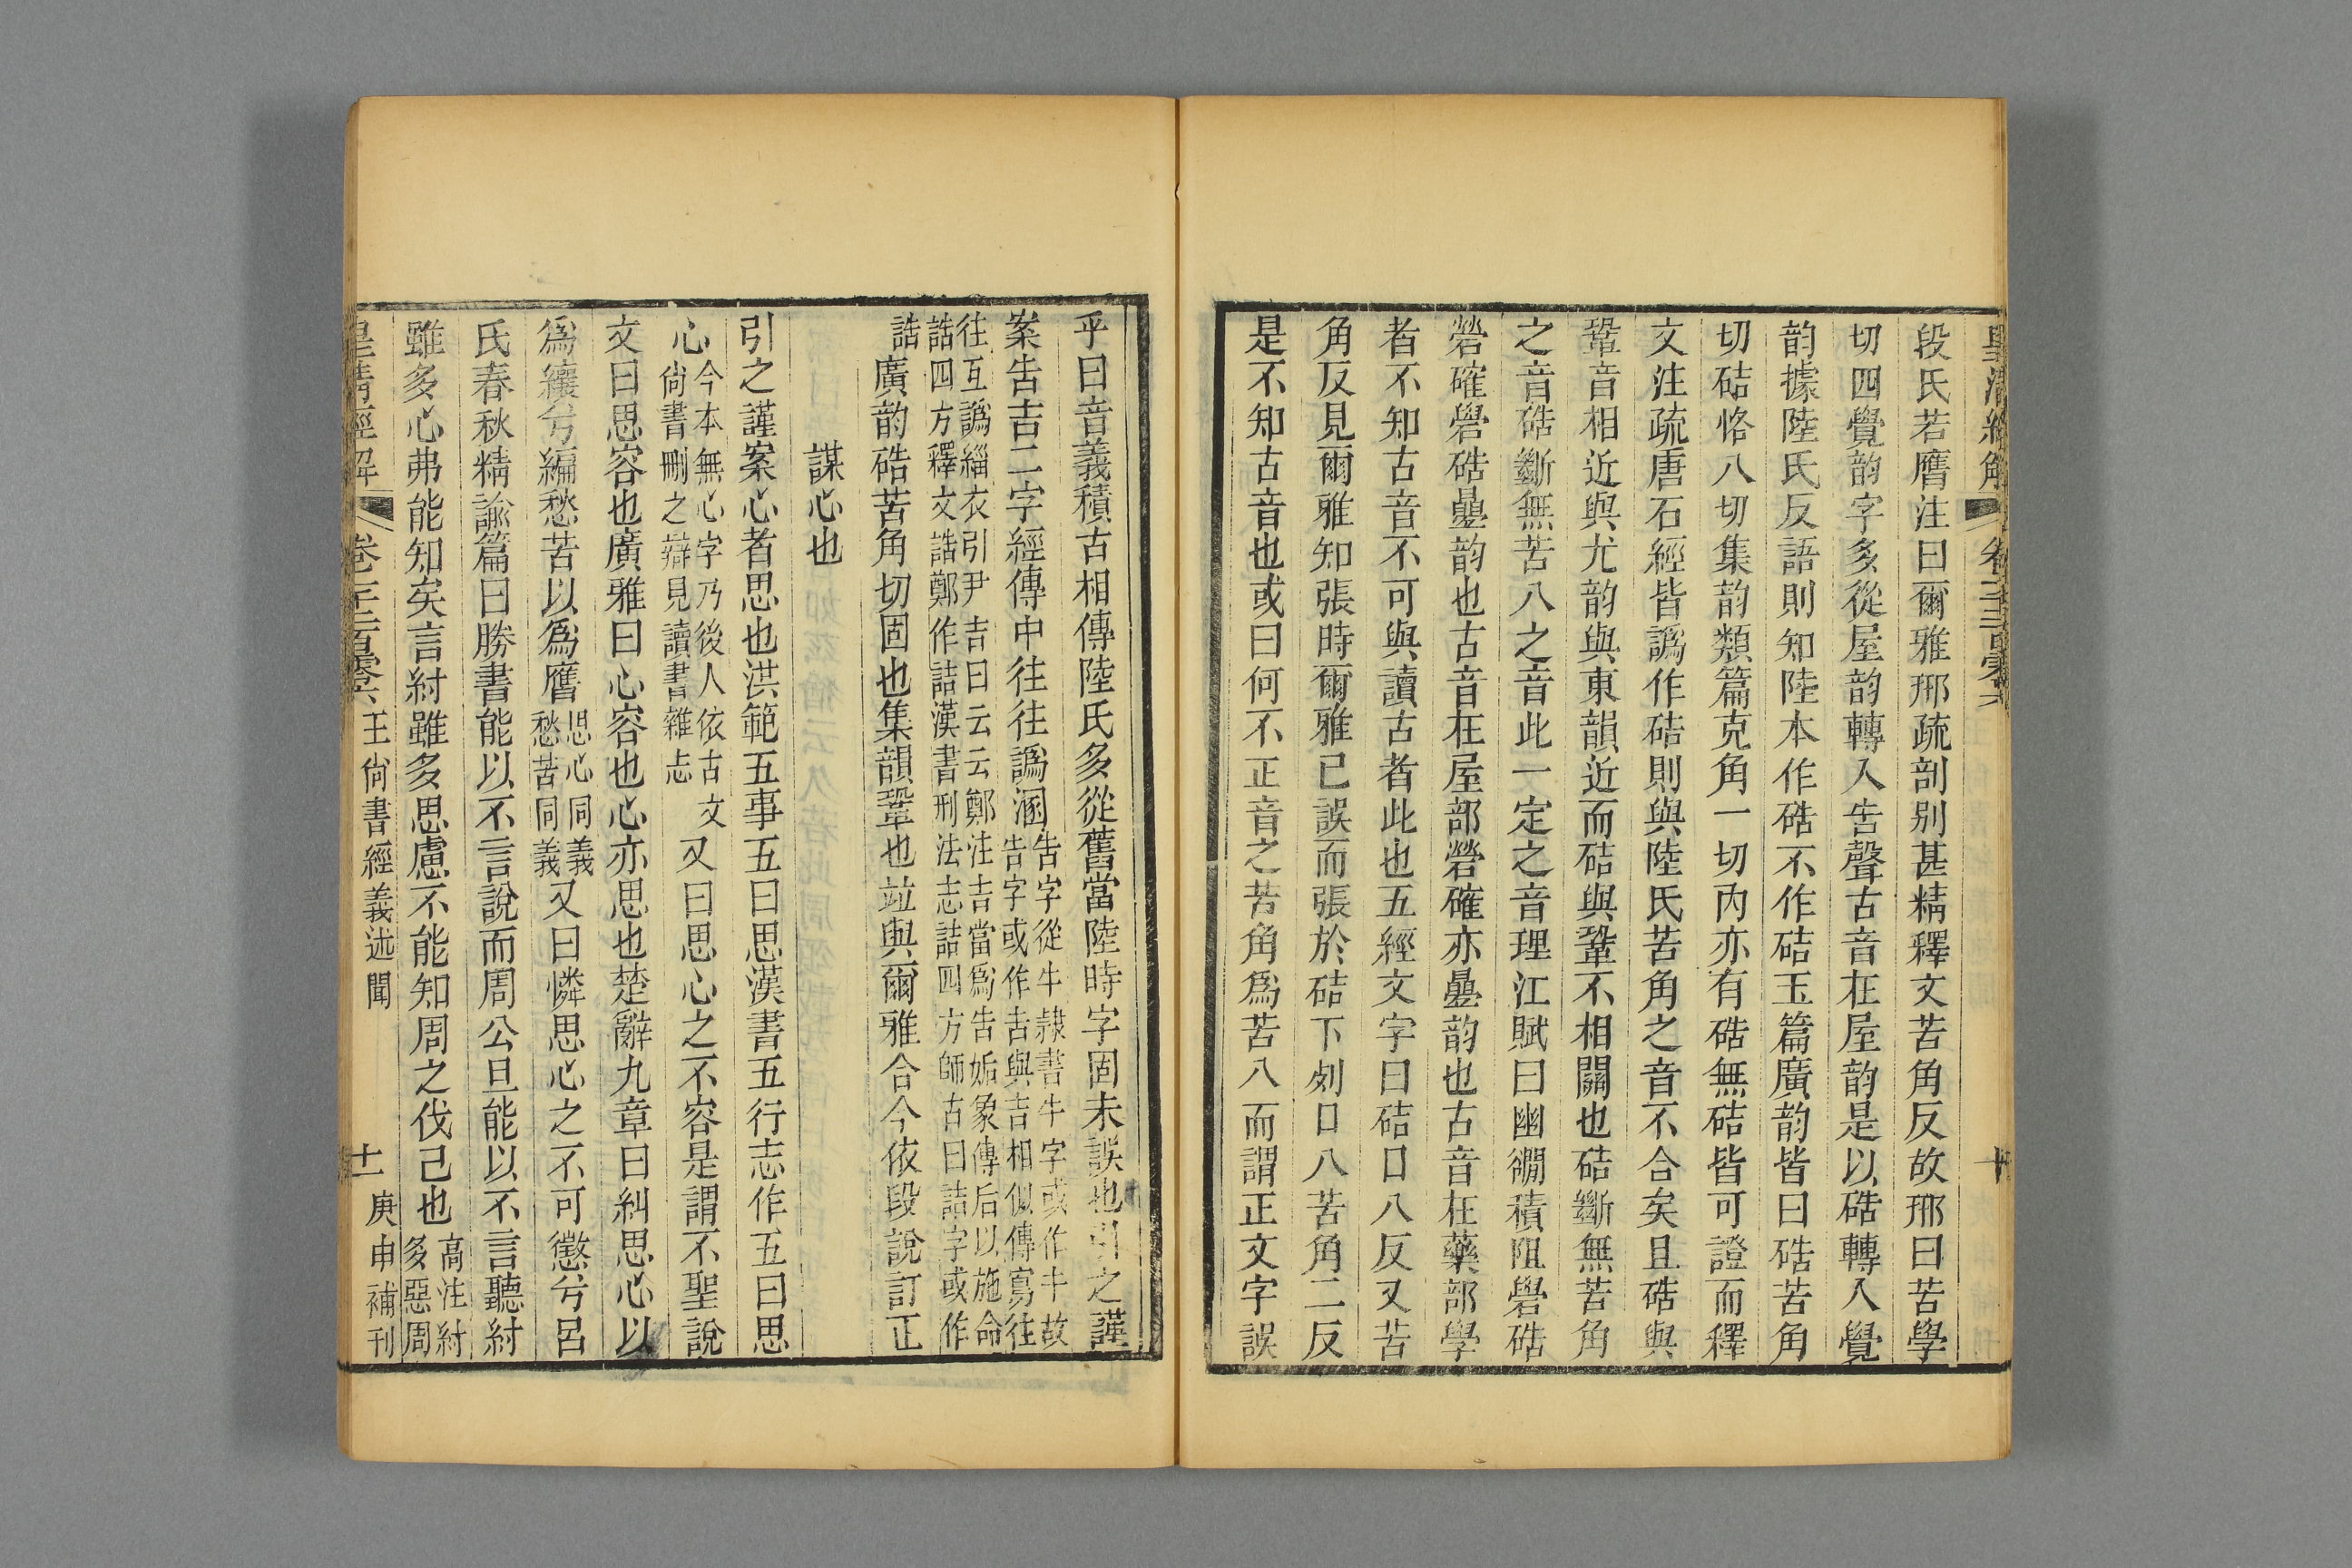 皇清經解 卷一千二百零六 十
段氏若膺注曰爾雅邢疏剖別甚精釋文苦角反故邢曰苦學
切四覺韵字多從屋韵轉入告聲古音在屋韵是以硞轉入覺
韵據陸氏反語則知陸本作硞不作硈玉篇廣韵皆曰硞苦角
切硈恪八切集韵類篇克角一切內亦有硞無硈皆可證而釋
文注疏唐石經皆譌作硈則與陸氏苦角之音不合矣且硞與
鞏音相近與尤韵與東韻近而硈與鞏不相關也硈斷無苦角
之音硞斷無苦八之音此一定之音理江賦曰幽㵎積岨礐硞
礐確礐硞曡韵也古音在屋部礐確亦曡韵也古音在藥部學
者不知古音不可與讀古者此也五經文字曰硈口八反又苦
角反見爾雅知張時爾雅已誤而張於硈下刿口八苦角二反
是不知古音也或曰何不正音之苦角爲苦八而謂正文字誤
乎曰音義積古相傳陸氏多從舊當陸時字固未誤也引之謹
案告吉二字經傳中往往譌溷告字從牛隸書牛字或作牛故
告字或作吉與吉相似傳寫往
往互譌緇衣引尹吉曰云云鄭注吉當爲告姤象傳后以施命
誥四方釋文誥鄭作詰漢書刑法志詰四方師古曰詰字或作
誥
廣韵硞苦角切固也集韻鞏也竝與爾雅合今依段說訂正
謀心也
引之謹案心者思也洪範五事五曰思漢書五行志作五曰思
心今本無心字乃後人依古文
尚書刪之辯見讀書雜志
又曰思心之不容是謂不聖說
文曰思容也廣雅曰心容也心亦思也楚辭九章曰糾思心以
爲纕兮編愁苦以爲膺思心同義
愁苦同義
又曰憐思心之不可懲兮呂
氏春秋精諭篇曰勝書能以不言說而周公旦能以不言聽紂
雖多心弗能知矣言紂雖多思慮不能知周之伐己也高注紂
多惡周
皇清經解 卷一千二百零六 王尚書經義述聞 十一 庚申補刊